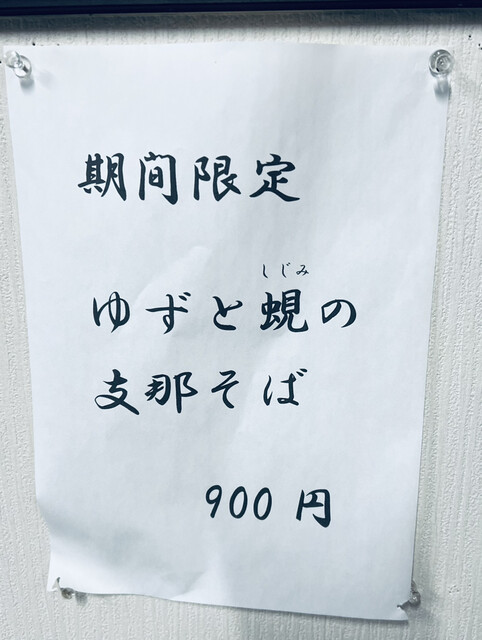 期間限定
しじみ
ゆずと蜆の
支那そば
900円